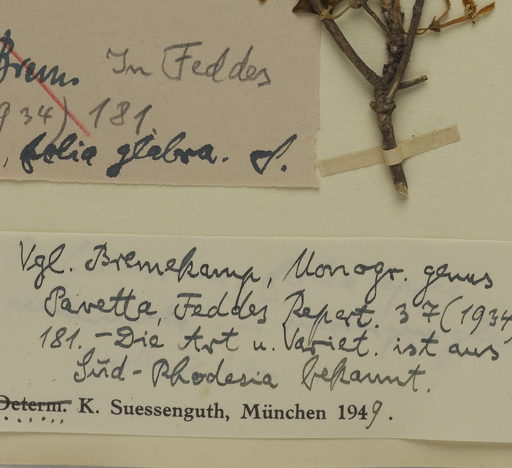 Brem. In Feddes
934) 181
, folia glabra. S.
Vgl. Bremekamp, Monogr. genus
Pavetta, Feddes Repert. 37 (1934)
181. – Die Art u. Variet. ist aus
Süd-Rhodesia bekannt.
Determ. K. Suessenguth, München 1949.